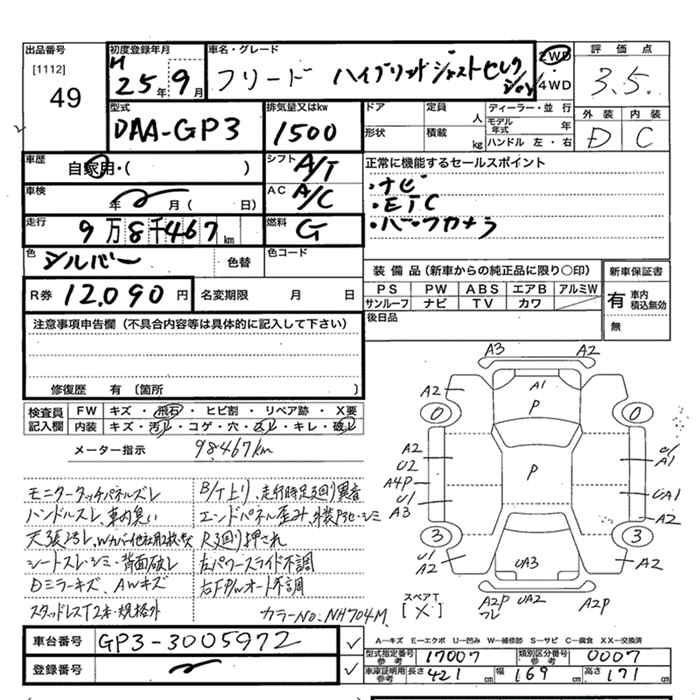 出品番号
[1112]
49
初度登録年月
H
25年 9月
車名・グレード
フリード ハイブリッドジャストセレクション
2WD
4WD
評価点
3.5.
外装 内装
D C
型式
DAA-GP3
排気量又はkw
1500
ドア
定員
人
形状
積載
kg
ディーラー・並行
モデル年式
年
ハンドル 左・右
車歴
自家用・( )
シフト
A/T
正常に機能するセールスポイント
・ナビ
・ETC
・バックカメラ
車検
年 月( 日)
AC
A/C
走行
9万8千467km
燃料
G
色
シルバー
色替
色コード
R券
12,090円
名変期限 月 日
装備品(新車からの純正品に限り○印)
PS PW ABS エアB アルミW
サンルーフ ナビ TV カワ
後日品
新車保証書
有 車内積込無効
無
注意事項申告欄(不具合内容等は具体的に記入して下さい)
修復歴 有〔箇所 〕
検査員記入欄
FW キズ・飛石・ヒビ割・リペア跡・X要
内装 キズ・汚レ・コゲ・穴・スレ・キレ・破レ
メーター指示
98,467km
モニタータッチパネルズレ
ハンドルスレ、車内臭い
シートスレ・シミ・背面破レ
Dミラーキズ、AWキズ
スタッドレスT2本・規格外
B/T上り、走行時足廻り異音
R廻り押され
左パワースライド不調
右FP/Wオート不調
カラーNo.NH704M
A3 A2
A2 A1
P
0 0
A2
U2
A4P
U1
A3
P
U1
A1
UA1
A2
3 3
U1
A2
UA3
A2
スペアT
[X]
A2P
フレ
UA2
A2P
車台番号
GP3-3005972
登録番号
A―キズ E―エクボ U―凹み W―補修跡 S―サビ C―腐食 XX―交換済
型式指定番号
参考
17007
類別区分番号
参考
0007
車庫証明用
参考
長さ 421 cm
幅 169 cm
高さ 171 cm